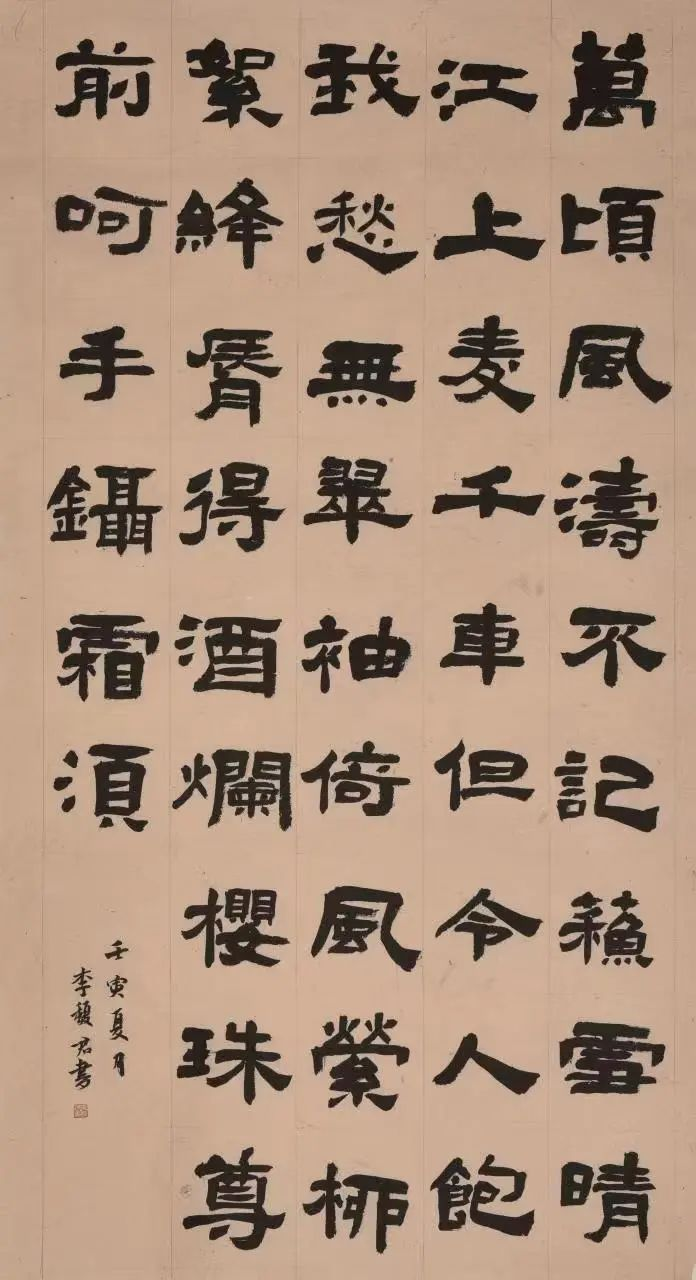 萬頃風濤不記蘓雪晴
江上麦千車但令人飽
我愁無翠袖倚風縈柳
絮絳脣得酒爛櫻珠尊
前呵手鑷霜湏
壬寅夏月
李馥君書